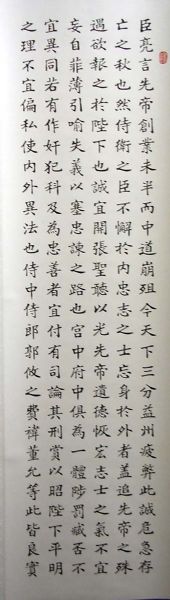 臣亮言先帝創業未半而中道崩殂今天下三分益州疲弊此誠危急存
亡之秋也然侍衛之臣不懈於內忠志之士忘身於外者蓋追先帝之殊
遇欲報之於陛下也誠宜開張聖聽以光先帝遺德恢宏志士之氣不宜
妄自菲薄引喻失義以塞忠諫之路也宮中府中俱為一體陟罰臧否不
宜異同若有作奸犯科及為忠善者宜付有司論其刑賞以昭陛下平明
之理不宜偏私使內外異法也侍中侍郎郭攸之費禕董允等此皆良實